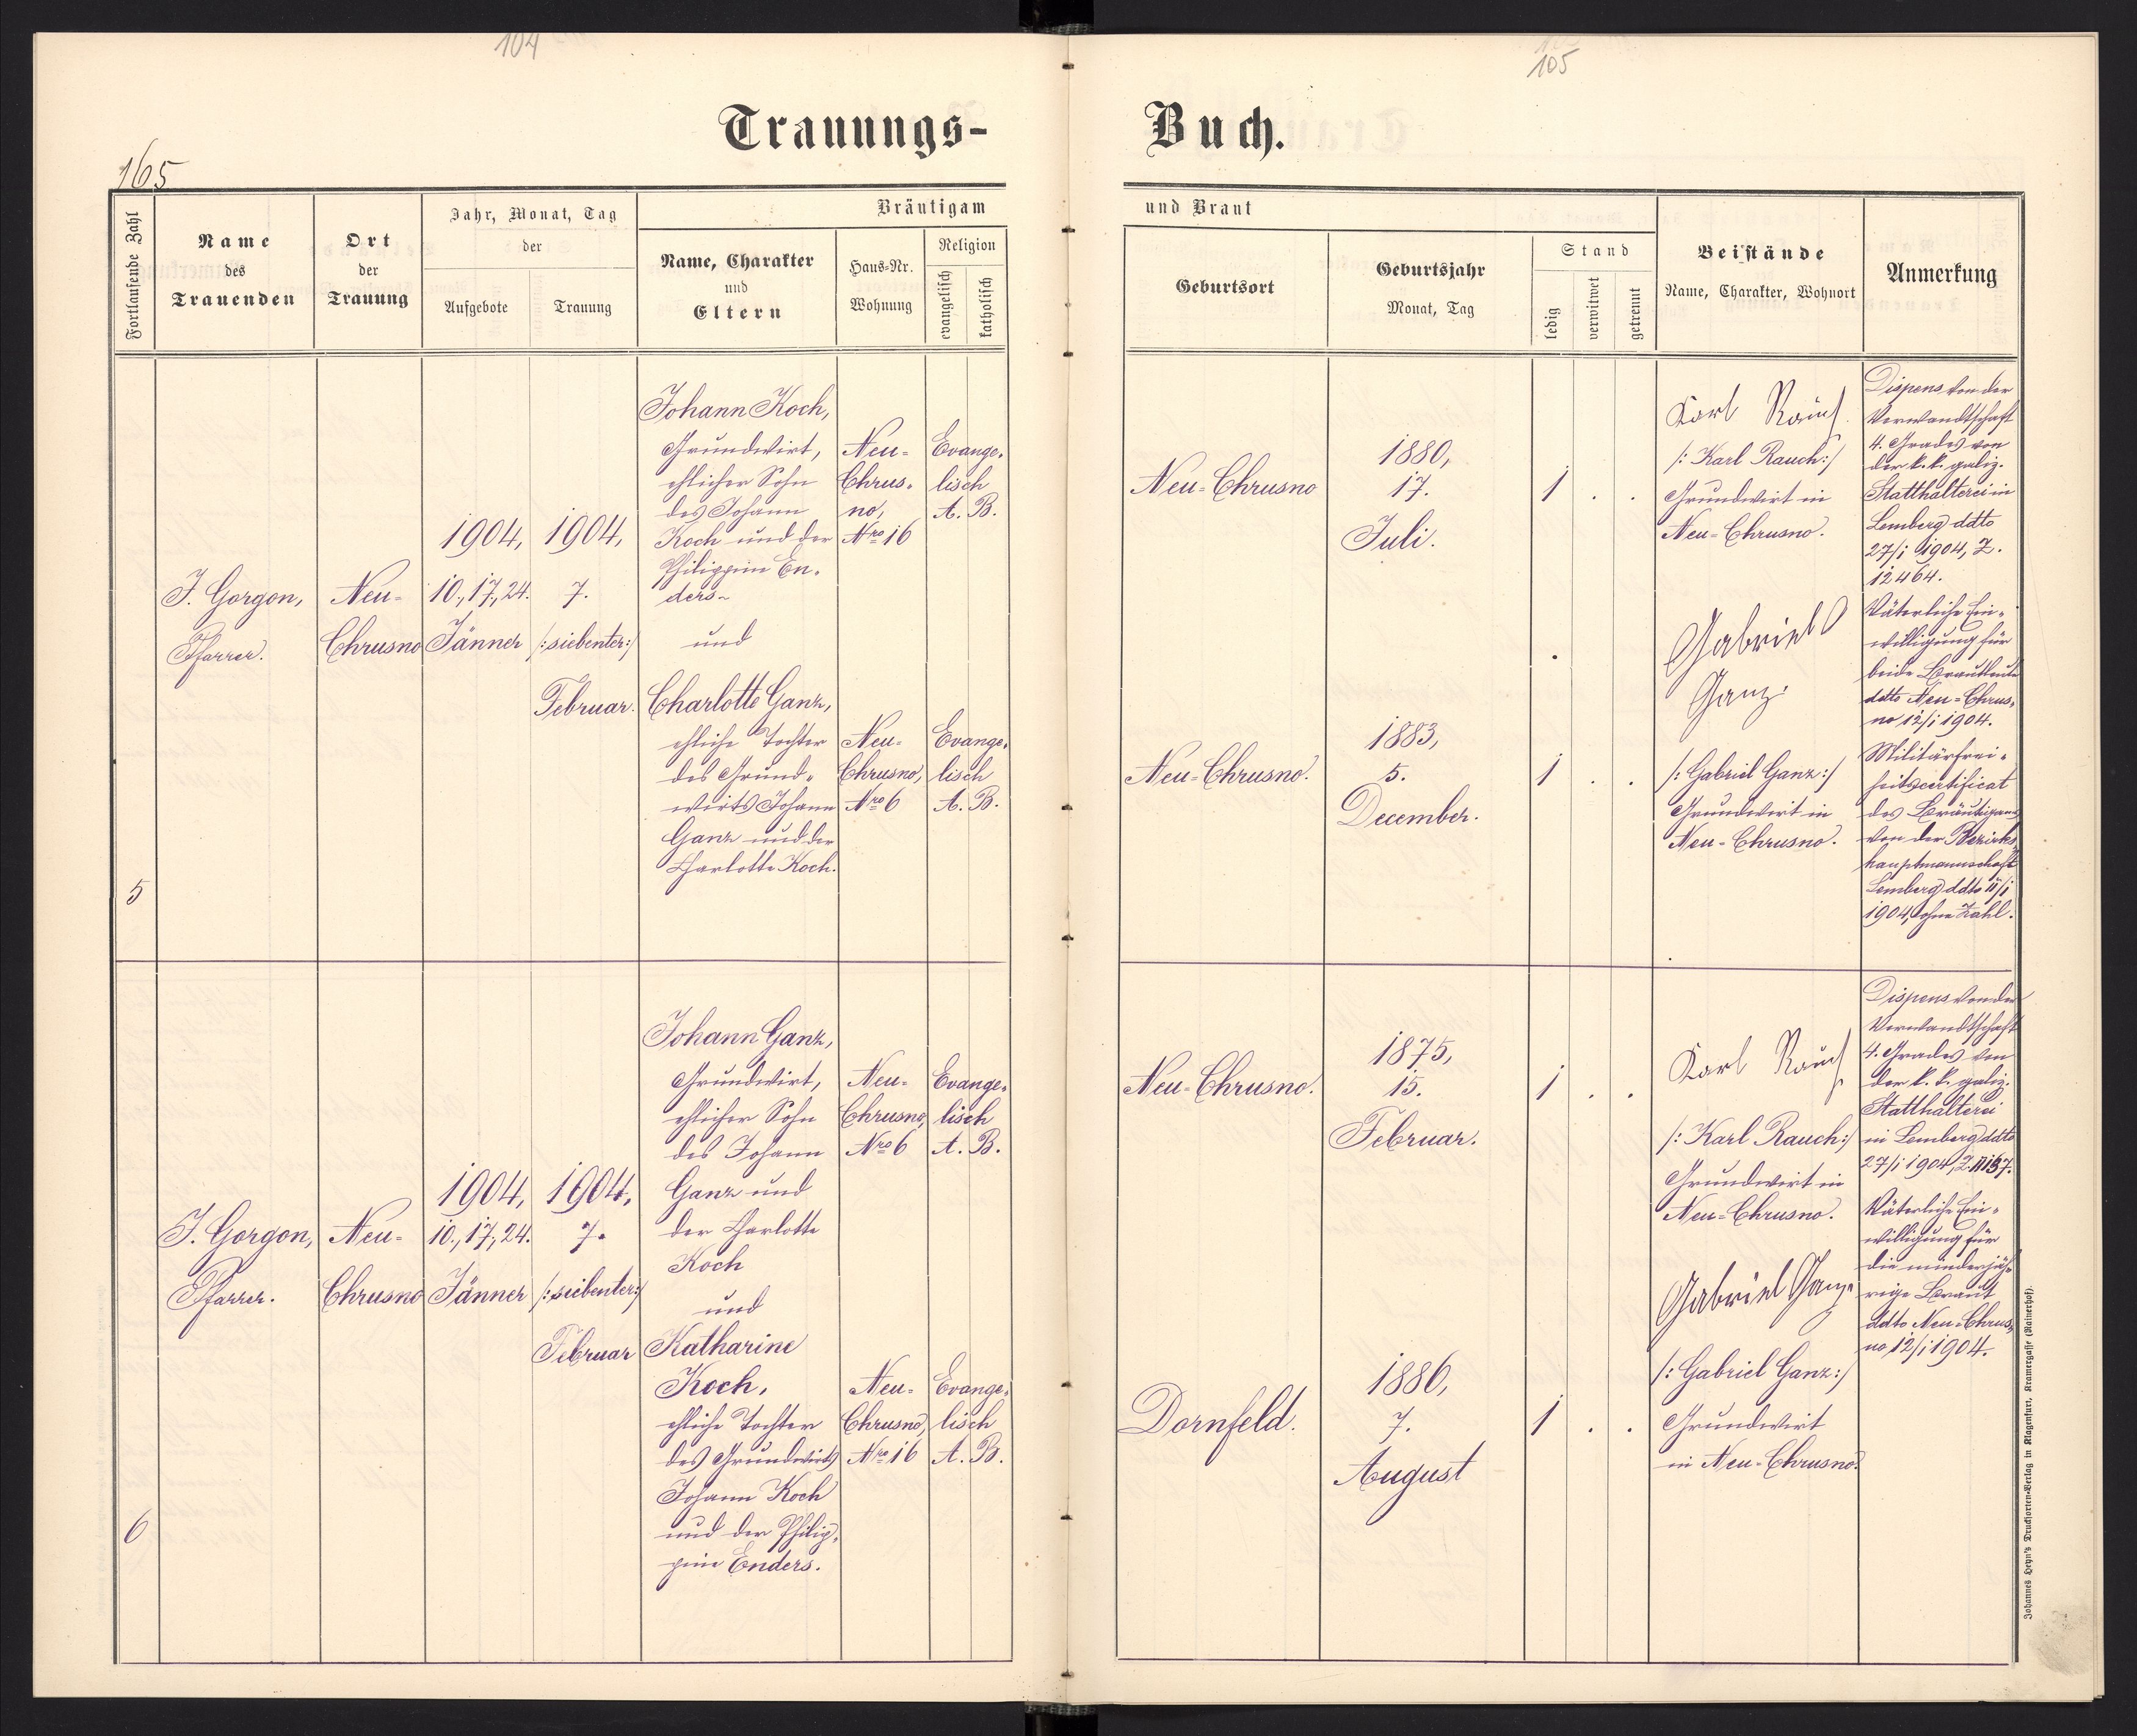 104
105
Trauungs-
Buch.
165
Fortlaufende Zahl
Name
des
Trauenden
Ort
der
Trauung
Jahr, Monat, Tag
der
Aufgebote
Trauung
Bräutigam
Name, Charakter
und
Eltern
Haus-Nr.
Wohnung
Religion
evangelisch
katholisch
und Braut
Geburtsort
Geburtsjahr
Monat, Tag
Stand
ledig
verwitwet
getrennt
Beistände
Name, Charakter, Wohnort
Anmerkung
5
J. Gorgon,
Pfarrer.
Neu-
Chrusno
1904,
10., 17., 24.
Jänner
1904,
7.
/:siebenter:/
Februar.
Johann Koch,
Grundwirt,
ehlicher Sohn
des Johann
Koch und der
Philippine En-
ders
und
Charlotte Ganz,
ehliche Tochter
des Grund-
wirts Johann
Ganz und der
Charlotte Koch.
Neu-
Chrus-
no,
Nro 16
Evange-
lisch
A. B.
Neu-
Chrusno,
Nro 6
Evange-
lisch
A. B.
Neu-Chrusno
1880,
17.
Juli.
1 . .
Neu-Chrusno.
1883,
5.
December.
1 . .
Karl Rauch
/: Karl Rauch:/
Grundwirt in
Neu-Chrusno.
Gabriel
Ganz
/: Gabriel Ganz:/
Grundwirt in
Neu-Chrusno.
Dispens von der
Verwandtschaft
4. Grades von
der k. k. galiz.
Statthalterei in
Lemberg ddto
27/i 1904, Z.
12464.
Väterliche Ein-
willigung für
beide Brautleute
ddto Neu-Chrus-
no 12/i 1904.
Militärfrei-
heitscertificat
des Bräutigams
von der Bezirks
hauptmannschaft
Lemberg ddto 11/i
1904, ohne Zahl.
6
J. Gorgon,
Pfarrer.
Neu-
Chrusno
1904,
10., 17., 24.
Jänner
1904,
7.
/:siebenter:/
Februar
Johann Ganz,
Grundwirt,
ehlicher Sohn
des Johann
Ganz und
der Charlotte
Koch
und
Katharine
Koch,
ehliche Tochter
des Grundwirts
Johann Koch
und der Philip-
pine Enders.
Neu-
Chrusno,
Nro 6
Evange-
lisch
A. B.
Neu-
Chrusno,
Nro 16
Evange-
lisch
A. B.
Neu-Chrusno.
1875,
15.
Februar.
1 . .
Dornfeld.
1886,
7.
August
1 . .
Karl Rauch
/: Karl Rauch:/
Grundwirt in
Neu-Chrusno.
Gabriel Ganz
/: Gabriel Ganz:/
Grundwirt
in Neu-Chrusno.
Dispens von der
Verwandtschaft
4. Grades von
der k. k. galiz.
Statthalterei
in Lemberg ddto
27/i 1904, Z.
Väterliche Ein-
willigung für
die minderjäh-
rige Braut
ddto Neu-Chrus-
no 12/i 1904.
Johannes Heyn's Drucksorten-Verlag in Klagenfurt, Kramergasse (Rainerhof).